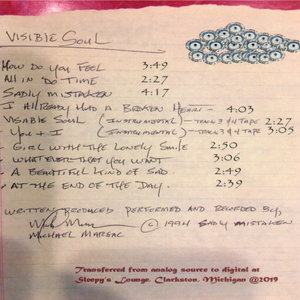 VISIBLE SOUL
HOW DO YOU FEEL 3:49
ALL IN DO TIME 2:27
SADLY MISTAKEN 4:17
I ALLREADY HAD A BROKEN HEART - 4:03
VISABLE SOUL (INSTRUMENTAL) - 2:27
YOU + I (INSTRUMENTAL) 3:05
GIRL WITH THE LONELY SMILE 2:50
WHAT EVER THAT YOU WANT 3:06
A BEAUTIFUL KIND OF SAD 2:49
AT THE END OF THE DAY. 2:39
WRITTEN PRODUCED PERFORMED AND RECORDED BY,
© 1994 SADLY MISTAKEN
MICHAEL
Transferred from analog source to digital at
Sleepy's Lounge, Clarkston, Michigan @2019